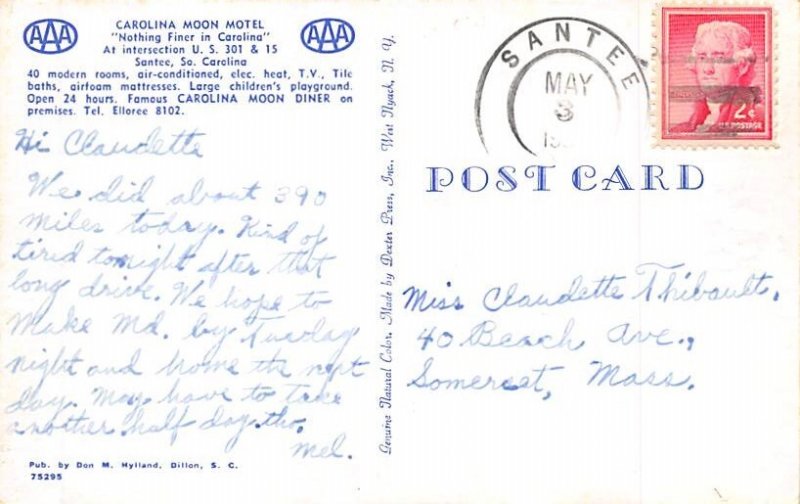 AAA
CAROLINA MOON MOTEL
"Nothing Finer in Carolina"
At intersection U. S. 301 & 15
Santee, So. Carolina
AAA
40 modern rooms, air-conditioned, elec. heat, T.V., Tile
baths, airfoam mattresses. Large children's playground.
Open 24 hours. Famous CAROLINA MOON DINER on
premises. Tel. Elloree 8102.
Hi Claudette
We did about 390
miles today. Kind of
tired tonight after that
long drive. We hope to
Make Md. by Tuesday
night and home the next
day. May have to take
another half day tho.
Mel.
Pub. by Don M. Hylland, Dillon, S. C.
75295
Genuine Natural Color, Made by Dexter Press, Inc., West Nyack, N. Y.
SANTEE
MAY
3
2¢
U.S. POSTAGE
POST CARD
Miss Claudette Thibault,
40 Beach Ave.,
Somerset, Mass.